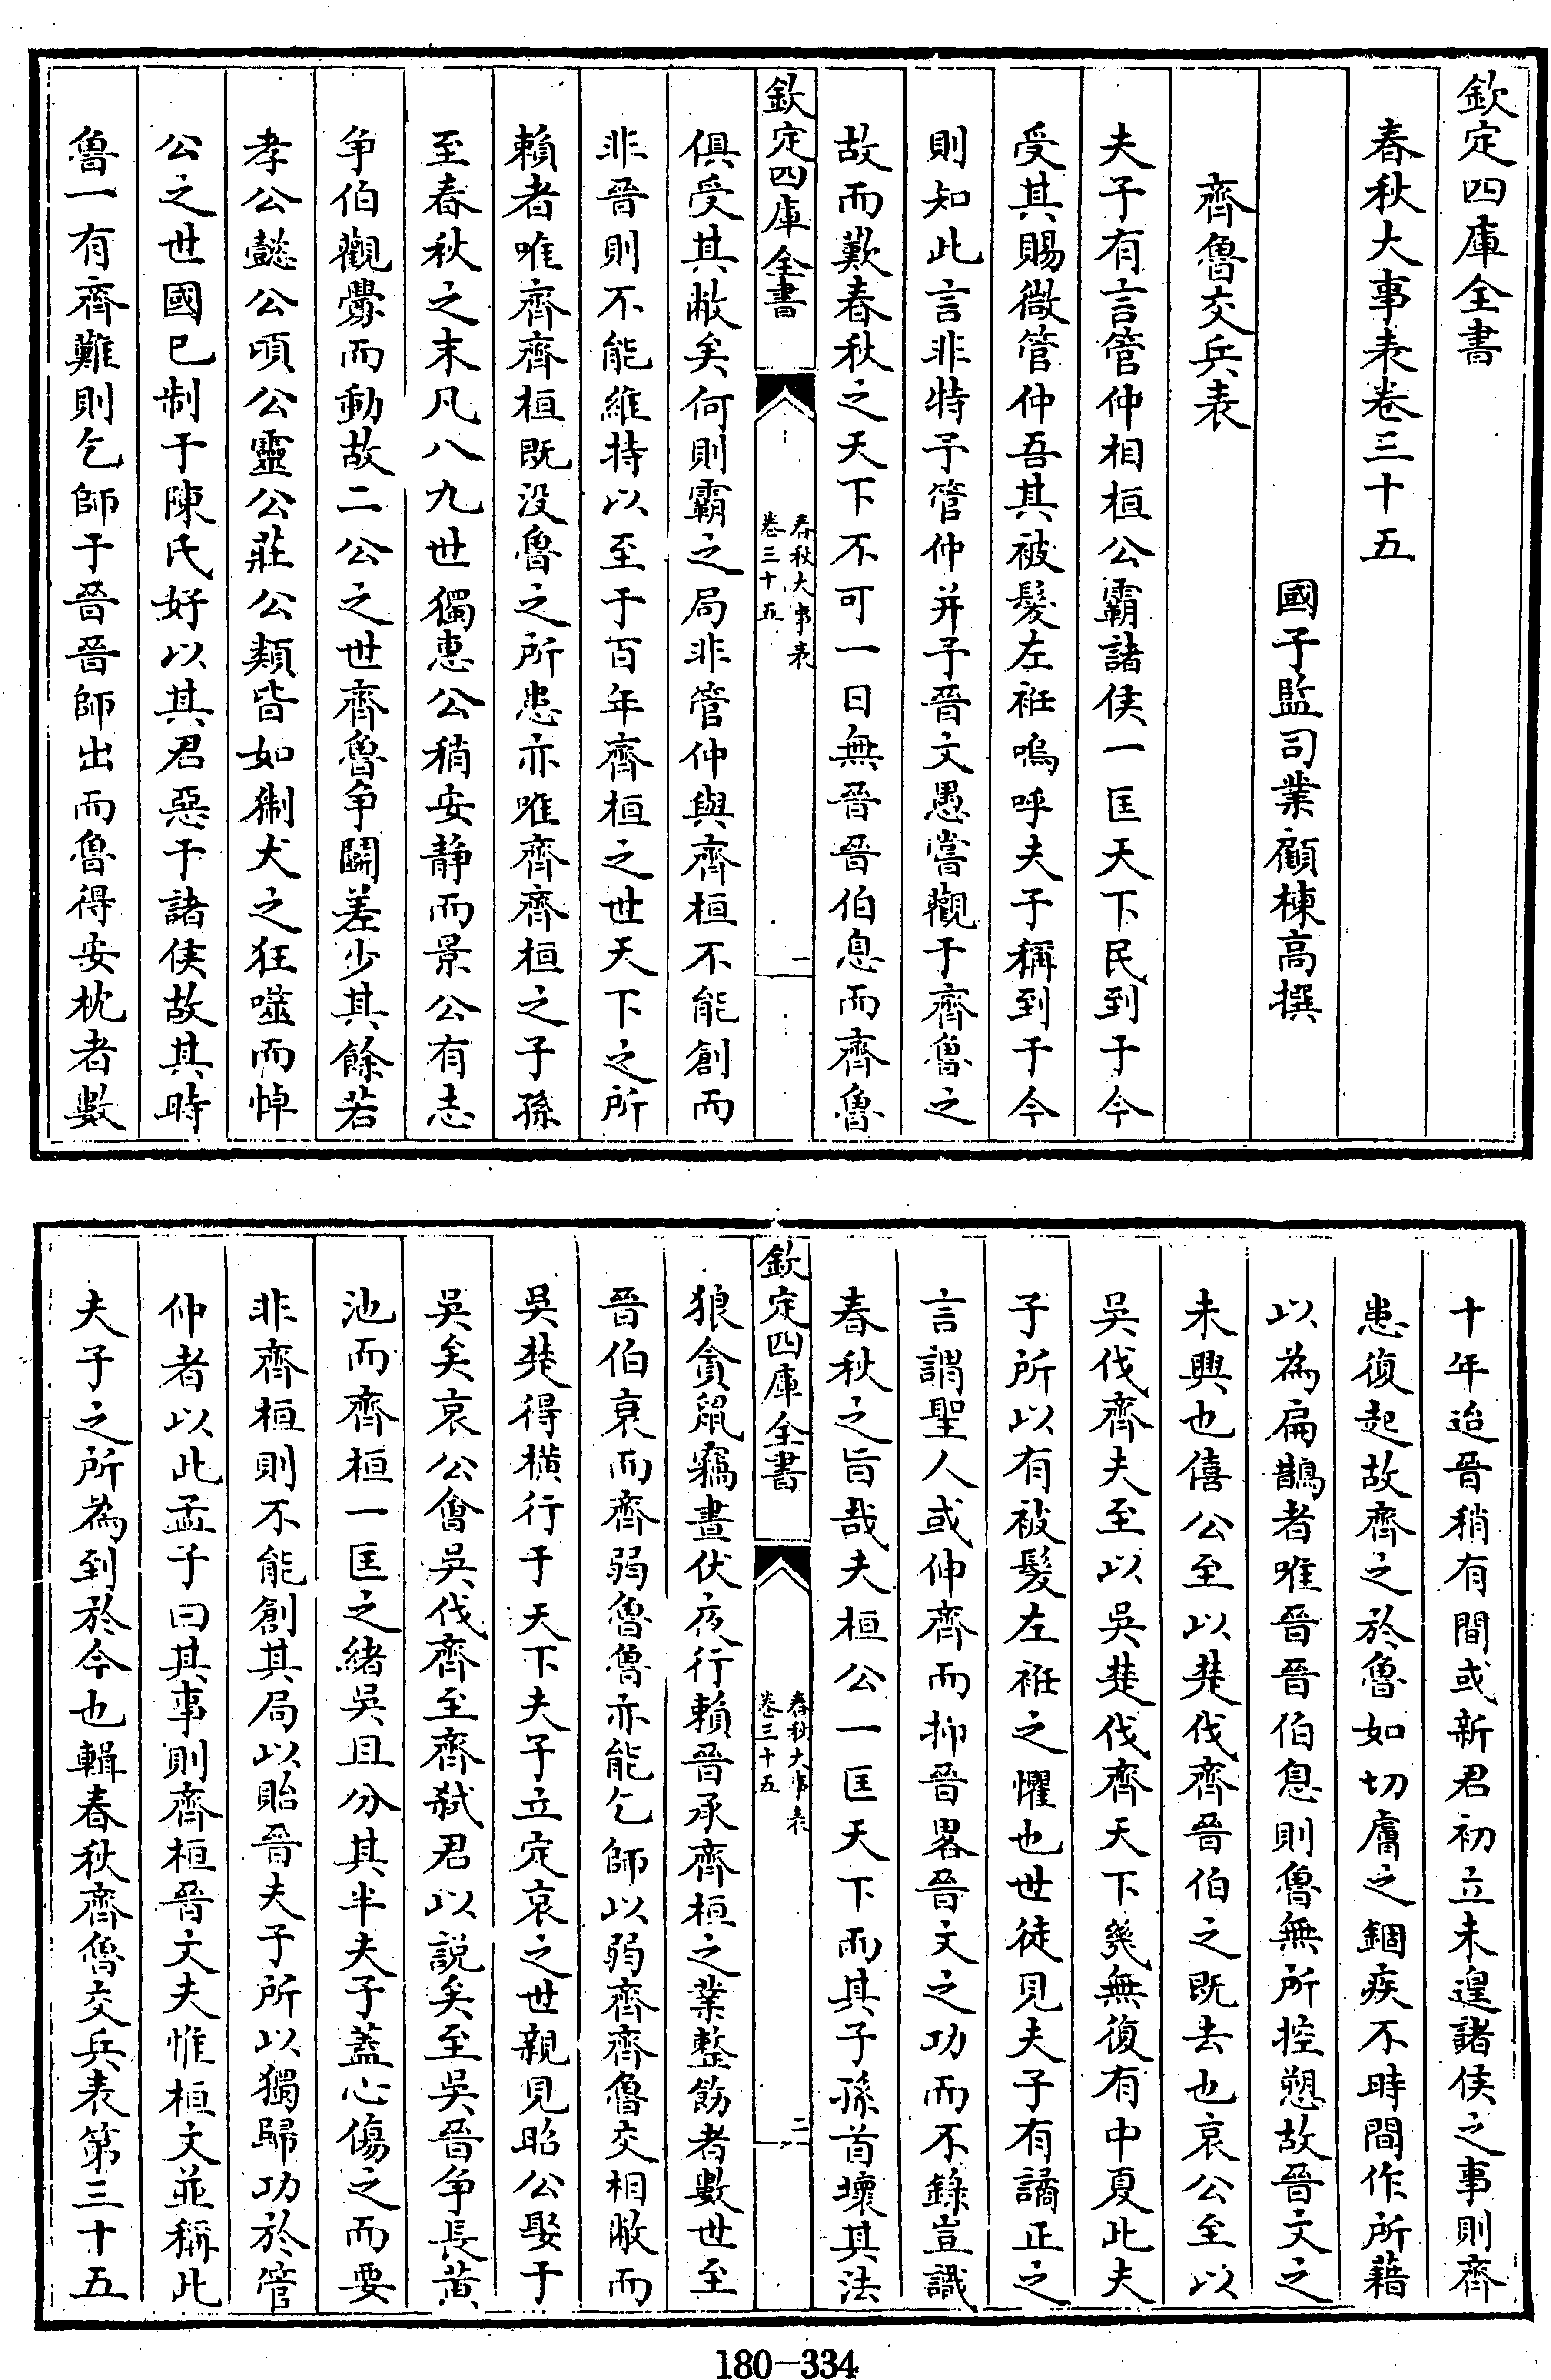 欽定四庫全書
春秋大事表卷三十五
國子監司業顧棟高撰
齊魯交兵表
夫子有言管仲相桓公霸諸侯一匡天下民到于今
受其賜微管仲吾其被髮左衽嗚呼夫子稱到于今
則知此言非特予管仲并予晉文愚嘗觀于齊魯之
故而歎春秋之天下不可一日無晉晉伯息而齊魯
欽定四庫全書
春秋大事表
卷三十五
一
俱受其敝矣何則霸之局非管仲與齊桓不能創而
非晉則不能維持以至于百年齊桓之世天下之所
賴者唯齊齊桓既没魯之所患亦唯齊齊桓之子孫
至春秋之末凡八九世獨惠公稍安静而景公有志
争伯觀釁而動故二公之世齊魯争鬭差少其餘若
孝公懿公頃公靈公莊公類皆如猘犬之狂噬而悼
公之世國已制于陳氏好以其君惡于諸侯故其時
魯一有齊難則乞師于晉晉師出而魯得安枕者數
十年迨晉稍有間或新君初立未遑諸侯之事則齊
患復起故齊之於魯如切膚之錮疾不時間作所藉
以為扁鵲者唯晉晉伯息則魯無所控愬故晉文之
未興也僖公至以楚伐齊晉伯之既去也哀公至以
吳伐齊夫至以吳楚伐齊天下幾無復有中夏此夫
子所以有被髮左衽之懼也世徒見夫子有譎正之
言謂聖人或伸齊而抑晉畧晉文之功而不錄豈識
春秋之旨哉夫桓公一匡天下而其子孫首壞其法
欽定四庫全書
春秋大事表
卷三十五
二
狼貪鼠竊晝伏夜行賴晉承齊桓之業整飭者數世至
晉伯衰而齊弱魯魯亦能乞師以弱齊齊魯交相敝而
吳楚得横行于天下夫子立定哀之世親見昭公娶于
吳矣哀公會吳伐齊至齊弑君以説矣至吳晉争長黄
池而齊桓一匡之緒吳且分其半夫子蓋心傷之而要
非齊桓則不能創其局以貽晉夫子所以獨歸功於管
仲者以此孟子曰其事則齊桓晉文夫惟桓文並稱此
夫子之所為到於今也輯春秋齊魯交兵表第三十五
180-334